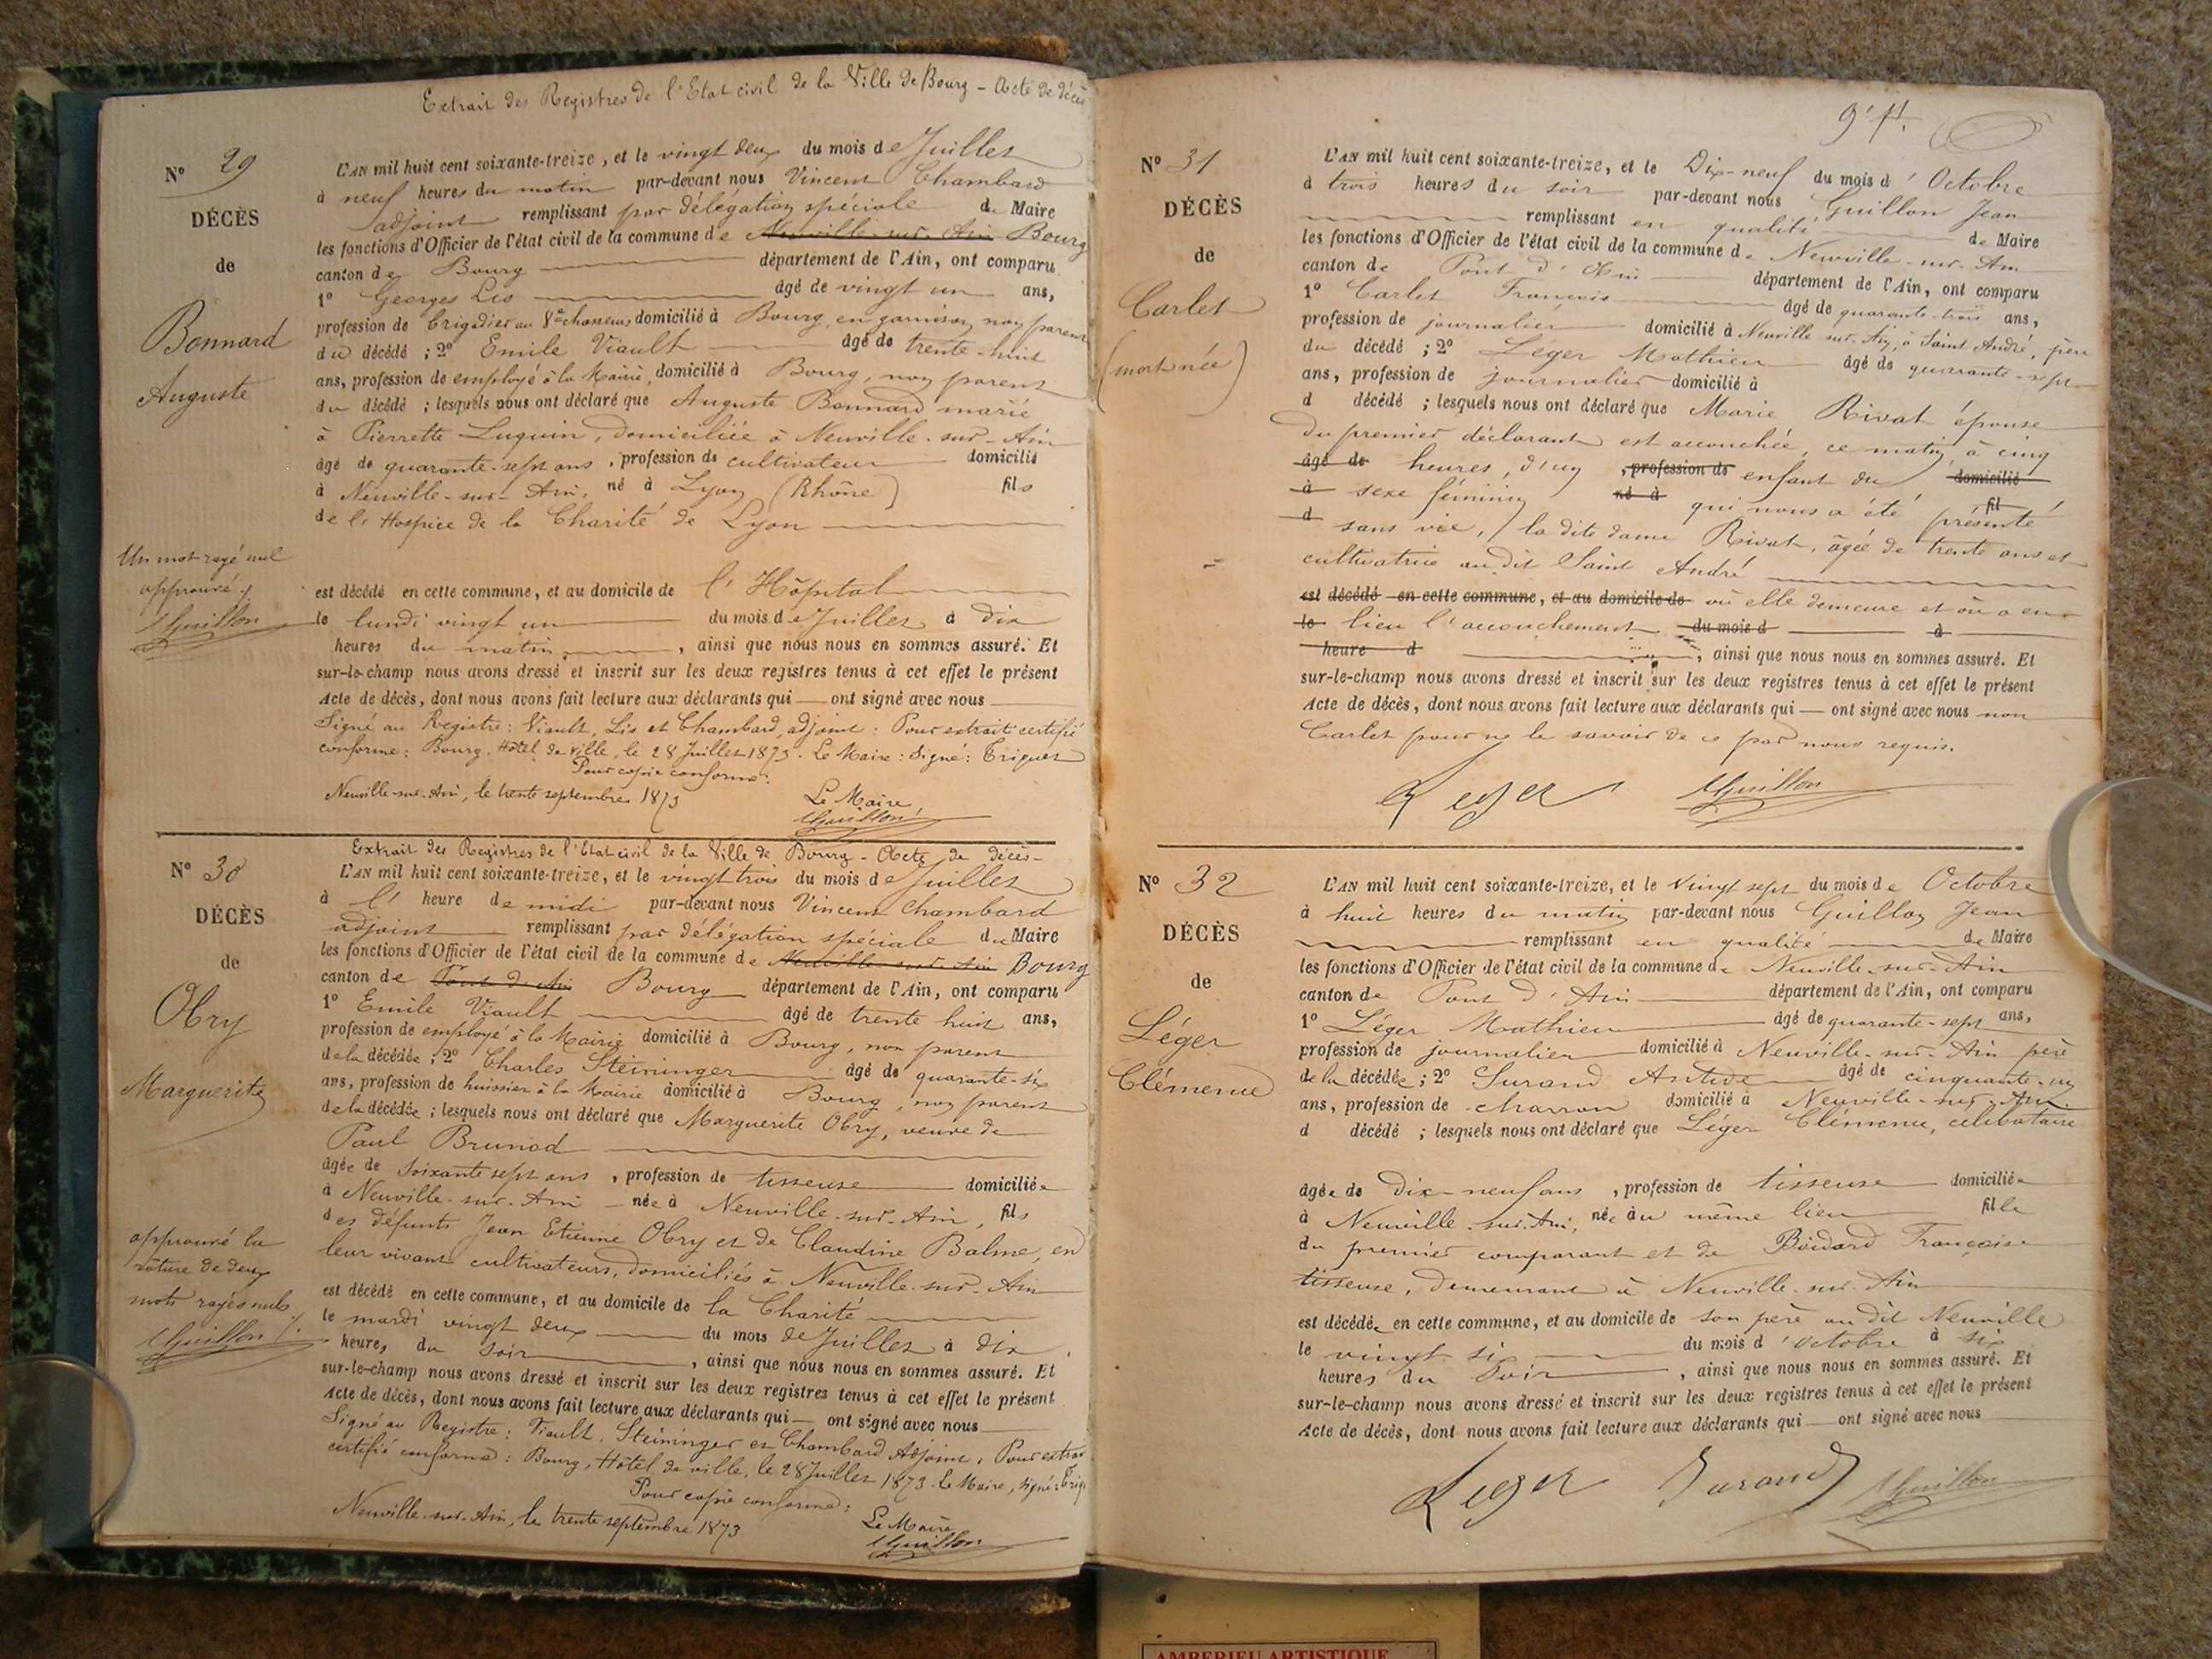 Extrait des Registres de l'Etat civil de la Ville de Bourg - Acte de décès
N° 29
DÉCÈS
de
Bonnard
Auguste
Un mot rayé nul
approuvé
Guillon
L'AN mil huit cent soixante-treize, et le vingt deux du mois de Juillet
à neuf heures du matin par-devant nous Vincent Chambard
adjoint remplissant par délégation spéciale du Maire
les fonctions d'Officier de l'état civil de la commune de Neuville-sur-Ain Bourg
canton de Bourg département de l'Ain, ont comparu
1° Georges Lis âgé de vingt un ans,
profession de brigadier au 8e chasseurs domicilié à Bourg, en garnison, non parent
du décédé ; 2° Emile Viault âgé de trente-huit
ans, profession de employé à la Mairie, domicilié à Bourg, non parent
du décédé ; lesquels nous ont déclaré que Auguste Bonnard marié
à Pierrette Luquin, domiciliée à Neuville-sur-Ain
âgé de quarante-sept ans, profession de cultivateur domicilié
à Neuville-sur-Ain, né à Lyon (Rhône) fils
de l'Hospice de la Charité de Lyon
est décédé en cette commune, et au domicile de l'Hôpital
le lundi vingt un du mois de Juillet à dix
heures du matin, ainsi que nous nous en sommes assuré. Et
sur-le-champ nous avons dressé et inscrit sur les deux registres tenus à cet effet le présent
Acte de décès, dont nous avons fait lecture aux déclarants qui — ont signé avec nous
Signé au Registre : Viault, Lis et Chambard, adjoint : Pour extrait certifié
conforme : Bourg, Hôtel de Ville, le 28 Juillet 1873. Le Maire : Signé :
Pour copie conforme :
Neuville-sur-Ain, le trente septembre 1873
Le Maire,
Guillon
N° 30
DÉCÈS
de
Obry
Marguerite
approuvé la
rature de deux
mots rayés nuls
Guillon
Extrait des Registres de l'Etat civil de la Ville de Bourg - Acte de décès -
L'AN mil huit cent soixante-treize, et le vingt trois du mois de Juillet
à l' heure de midi par-devant nous Vincent Chambard
adjoint remplissant par délégation spéciale du Maire
les fonctions d'Officier de l'état civil de la commune de Neuville-sur-Ain Bourg
canton de Pont-d'Ain Bourg département de l'Ain, ont comparu
1° Emile Viault âgé de trente huit ans,
profession de employé à la Mairie domicilié à Bourg, non parent
de la décédée ; 2° Charles Steininger âgé de quarante-six
ans, profession de huissier à la Mairie domicilié à Bourg, non parent
de la décédée ; lesquels nous ont déclaré que Marguerite Obry, veuve de
Paul Brunod
âgée de soixante sept ans, profession de tisseuse domiciliée
à Neuville-sur-Ain née à Neuville-sur-Ain, fils
des défunts Jean Etienne Obry et de Claudine Balme, en
leur vivant cultivateurs, domiciliés à Neuville-sur-Ain
est décédé en cette commune, et au domicile de la Charité
le mardi vingt deux du mois de Juillet à dix
heures du soir, ainsi que nous nous en sommes assuré. Et
sur-le-champ nous avons dressé et inscrit sur les deux registres tenus à cet effet le présent
Acte de décès, dont nous avons fait lecture aux déclarants qui — ont signé avec nous
Signé au Registre : Viault, Steininger et Chambard Adjoint, Pour extrait
certifié conforme : Bourg, Hôtel de ville, le 28 Juillet 1873. Le Maire, signé :
Pour copie conforme :
Neuville-sur-Ain, le trente septembre 1873
Le Maire
Guillon
N° 31
DÉCÈS
de
Carlet
(mort-née)
L'AN mil huit cent soixante-treize, et le Dix-neuf du mois d'Octobre
à trois heures du soir par-devant nous Guillon Jean
remplissant en qualité de Maire
les fonctions d'Officier de l'état civil de la commune de Neuville-sur-Ain
canton de Pont d'Ain département de l'Ain, ont comparu
1° Carlet François âgé de quarante-trois ans,
profession de journalier domicilié à Neuville-sur-Ain, à Saint André, père
du décédé ; 2° Leger Mathieu âgé de quarante-sept
ans, profession de journalier domicilié à
d décédé ; lesquels nous ont déclaré que Marie Rivat épouse
du premier déclarant est accouchée, ce matin, à cinq
âgé de heures, d'un , profession de enfant du domicilié
à sexe féminin né à qui nous a été présenté fil
d sans vie, la dite dame Rivat, âgée de trente ans et
cultivatrice au dit Saint André
est décédé en cette commune, et au domicile de où elle demeure et où a eu
le lieu l'accouchement du mois d à
heure d , ainsi que nous nous en sommes assuré. Et
sur-le-champ nous avons dressé et inscrit sur les deux registres tenus à cet effet le présent
Acte de décès, dont nous avons fait lecture aux déclarants qui — ont signé avec nous non
Carlet pour ne le savoir de ce par nous requis.
Leger Guillon
N° 32
DÉCÈS
de
Léger
Clémence
L'AN mil huit cent soixante-treize, et le Vingt sept du mois de Octobre
à huit heures du matin par-devant nous Guillon Jean
remplissant en qualité de Maire
les fonctions d'Officier de l'état civil de la commune de Neuville-sur-Ain
canton de Pont d'Ain département de l'Ain, ont comparu
1° Léger Mathieu âgé de quarante-sept ans,
profession de journalier domicilié à Neuville-sur-Ain père
de la décédée ; 2° Surand Antide âgé de cinquante-un
ans, profession de charron domicilié à Neuville-sur-Ain
d décédé ; lesquels nous ont déclaré que Léger Clémence, célibataire
âgée de Dix-neuf ans, profession de tisseuse domiciliée
à Neuville-sur-Ain, née au même lieu fille
du premier comparant et de Françoise
tisseuse, demeurant à Neuville-sur-Ain
est décédée en cette commune, et au domicile de son père au dit Neuville
le vingt six du mois d'Octobre à six
heures du Soir, ainsi que nous nous en sommes assuré. Et
sur-le-champ nous avons dressé et inscrit sur les deux registres tenus à cet effet le présent
Acte de décès, dont nous avons fait lecture aux déclarants qui — ont signé avec nous
Leger Surand Guillon
AMBERIEU ARTISTIQUE